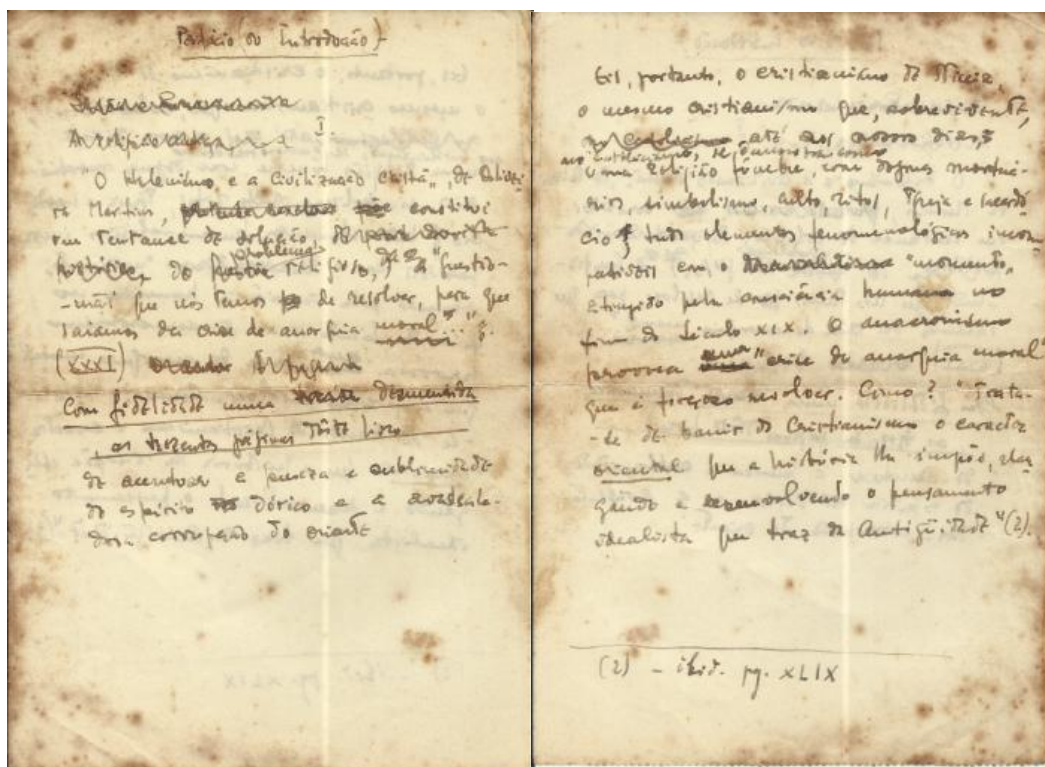 Prefácio (ou Introdução)
I.
"O Helenismo e a Civilização Cristã", de Olivei-
ra Martins, constitui
um tentame de solução,
problema
do religioso, "a questão-
-mãi que nós temos de resolver, para que
saiamos da crise de anarquia moral..."
(XXXI)
Com fidelidade nunca desmentida
, as trezentas páginas dêste livro
de acentuar a pureza e sublimidade
do espírito dórico e a avassala-
dora corrupção do oriente
Eis, portanto, o cristianismo de Niceia,
o mesmo cristianismo que, sobrevivente,
até aos nossos dias,
no catolicismo, se demonstra como
uma religião fúnebre, com dogmas mortuá-
rios, simbolismo, culto, ritos, Igreja e sacerdó-
cio tudo elementos fenomenológicos incom-
patíveis com o "momento"
atingido pela consciência humana no
fim do século XIX. O anacronismo
provoca uma "crise de anarquia moral"
que é forçoso resolver. Como? "Trata-
-se de banir do Cristianismo o carácter
oriental que a história lhe impôs, alar-
gando e desenvolvendo o pensamento
idealista que traz da Antigüidade" (2).
(2) - ibid. pg. XLIX